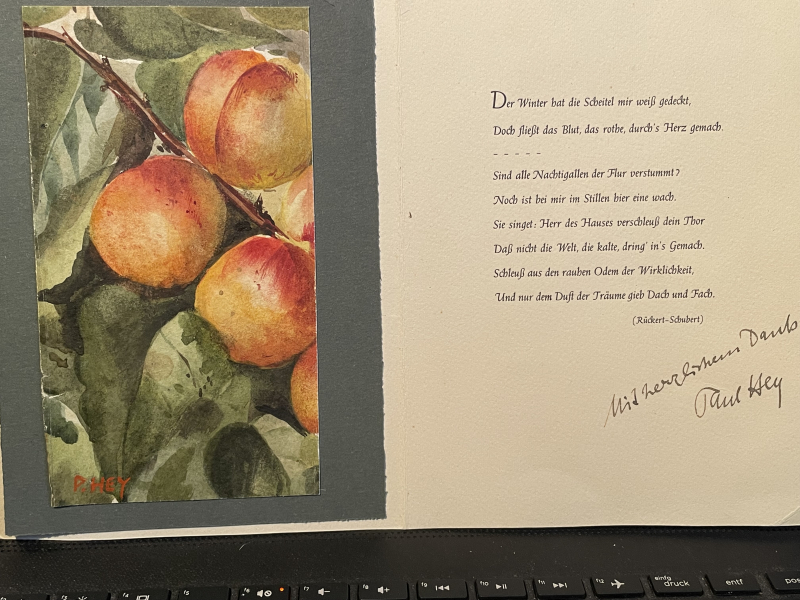 P. HEY
Der Winter hat die Scheitel mir weiß gedeckt,
Doch fließt das Blut, das rothe, durch's Herz gemach.
- - - - -
Sind alle Nachtigallen der Flur verstummt?
Noch ist bei mir im Stillen hier eine wach.
Sie singet: Herr des Hauses verschleuß dein Thor
Daß nicht die Welt, die kalte, dring' in's Gemach.
Schleuß aus den rauhen Odem der Wirklichkeit,
Und nur dem Duft der Träume gieb Dach und Fach.
(Rückert-Schubert)
Mit herzlichem Dank
Paul Hey
f4 f5 f6 f7 f8 f9 f10 f11 f12 einfg druck entf